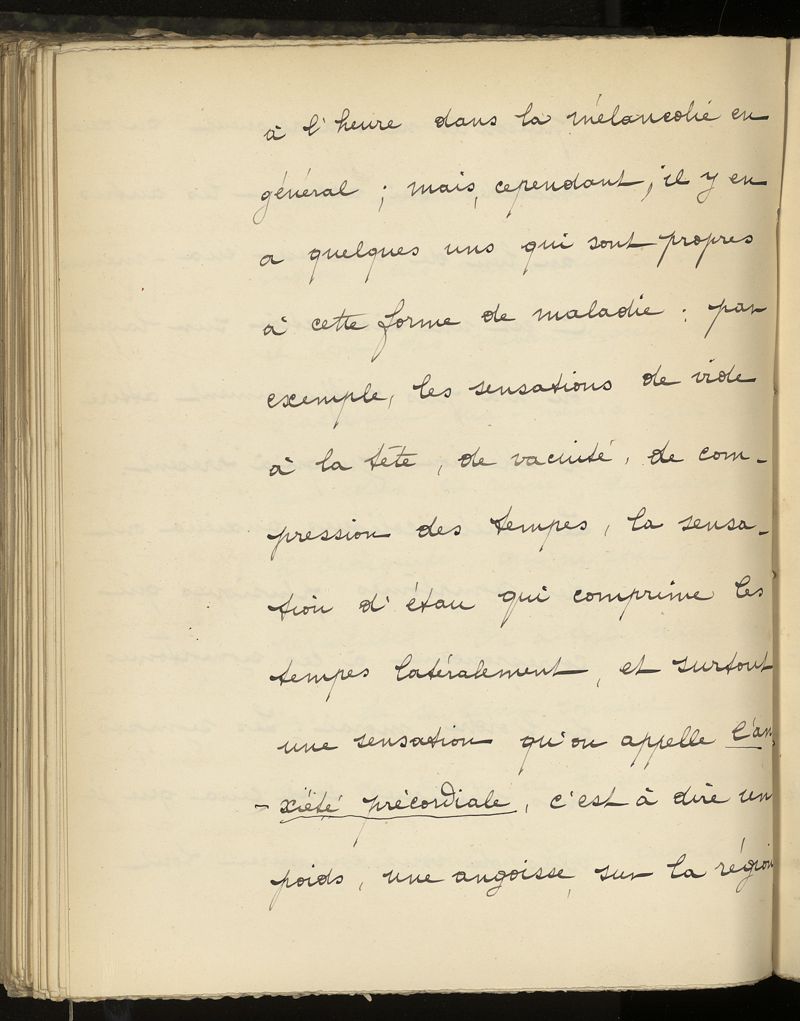 à l'heure dans la mélancolie en
général ; mais, cependant, il y en
a quelques uns qui sont propres
à cette forme de maladie : par
exemple, les sensations de vide
à la tête, de vacuité, de com-
pression des tempes, la sensa-
tion d'étau qui comprime les
tempes latéralement, et surtout
une sensation qu'on appelle l'an-
-xiété précordiale, c'est à dire un
poids, une angoisse, sur la région